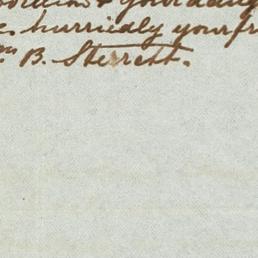 & your daug
hurriedly your fr
Wm B. Sterrett.